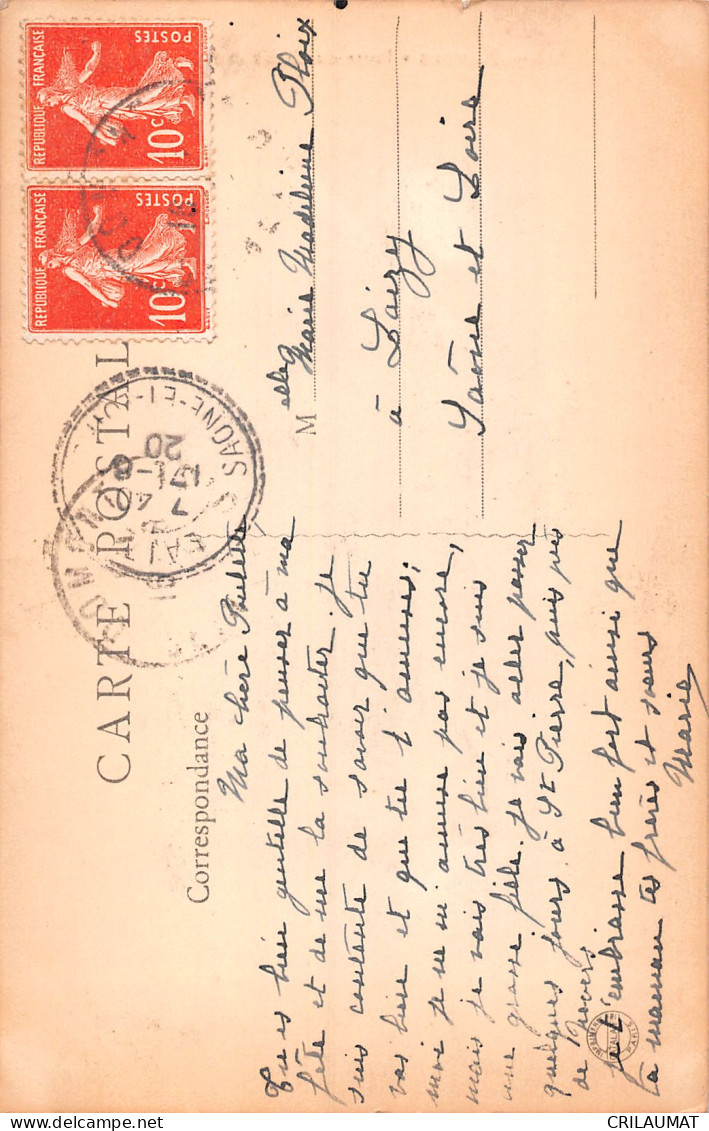 CARTE POSTALE
Correspondance
Ma chère Paulette
Tu es bien gentille de penser à ma
fête et de me la souhaiter. Je
suis contente de savoir que tu
vas bien et que tu t'amuses;
moi je ne m'amuse pas encore,
mais je vais très bien et je suis
une grosse fille. Je vais aller passer
quelques jours à St Pierre, puis près
de Nevers
Je t'embrasse bien fort ainsi que
ta maman tes frères et sœurs
Marie
Melle Marie Madeleine Ploix
à Laizy
Saône et Loire
REPUBLIQUE FRANÇAISE
POSTES
10c
REPUBLIQUE FRANÇAISE
POSTES
10c
SAONE-ET-
17
7
20
CRILAUMAT